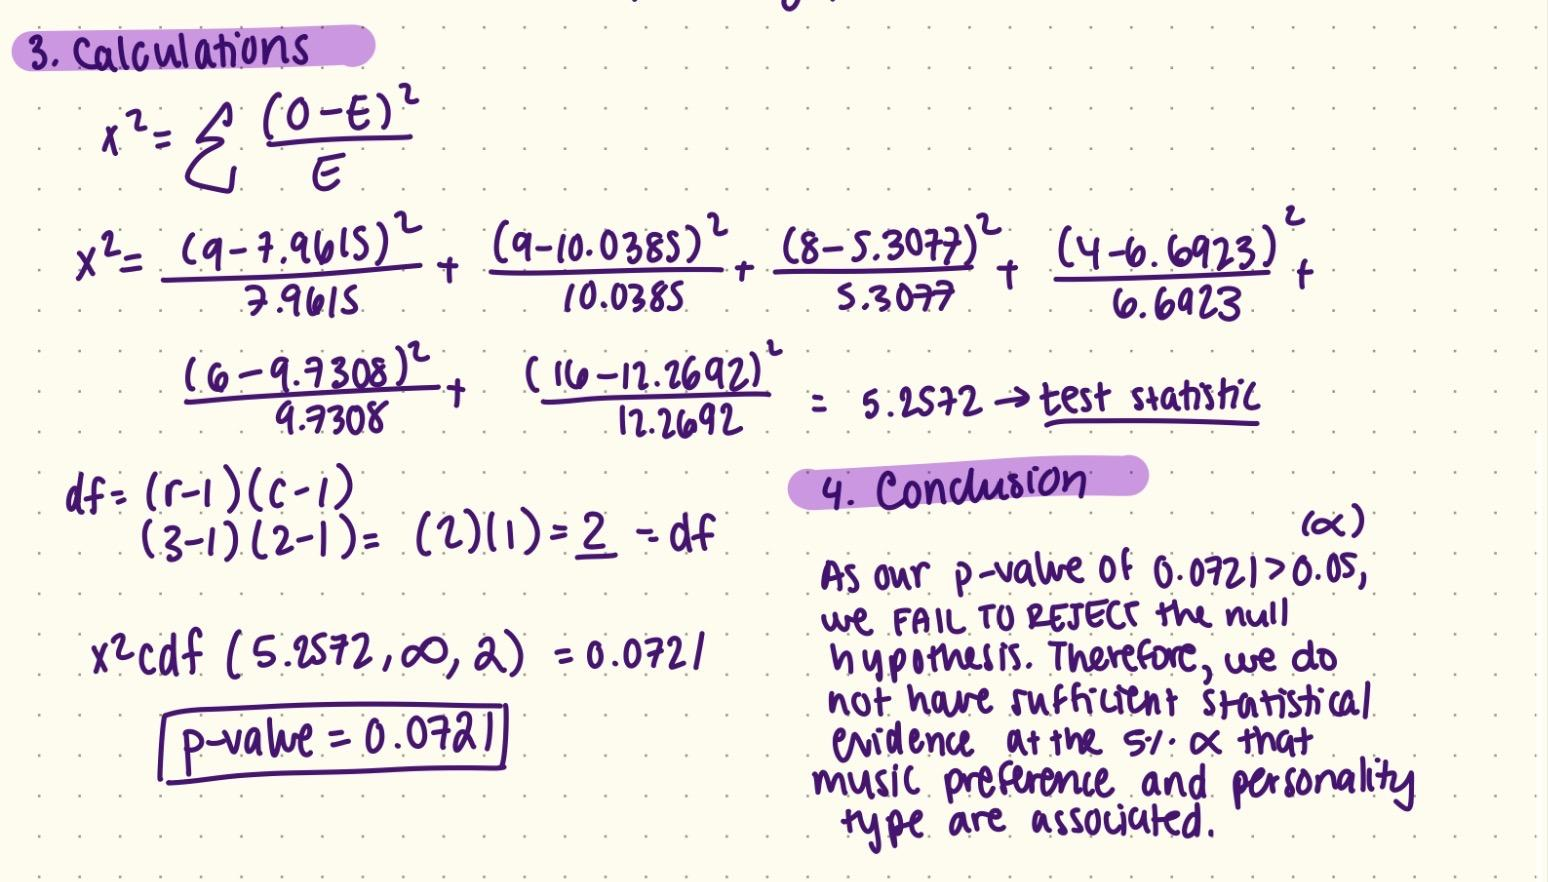 3. Calculations
x² = Σ (O-E)² / E
x² = (9-7.9615)² / 7.9615 + (9-10.0385)² / 10.0385 + (8-5.3077)² / 5.3077 + (4-6.6923)² / 6.6923 +
(6-9.7308)² / 9.7308 + (16-12.2692)² / 12.2692 = 5.2572 → test statistic
df = (r-1)(c-1)
(3-1)(2-1) = (2)(1) = 2 = df
x²cdf (5.2572, ∞, 2) = 0.0721
p-value = 0.0721
4. Conclusion
(α)
As our p-value of 0.0721 > 0.05,
we FAIL TO REJECT the null
hypothesis. Therefore, we do
not have sufficient statistical
evidence at the 5% α that
music preference and personality
type are associated.